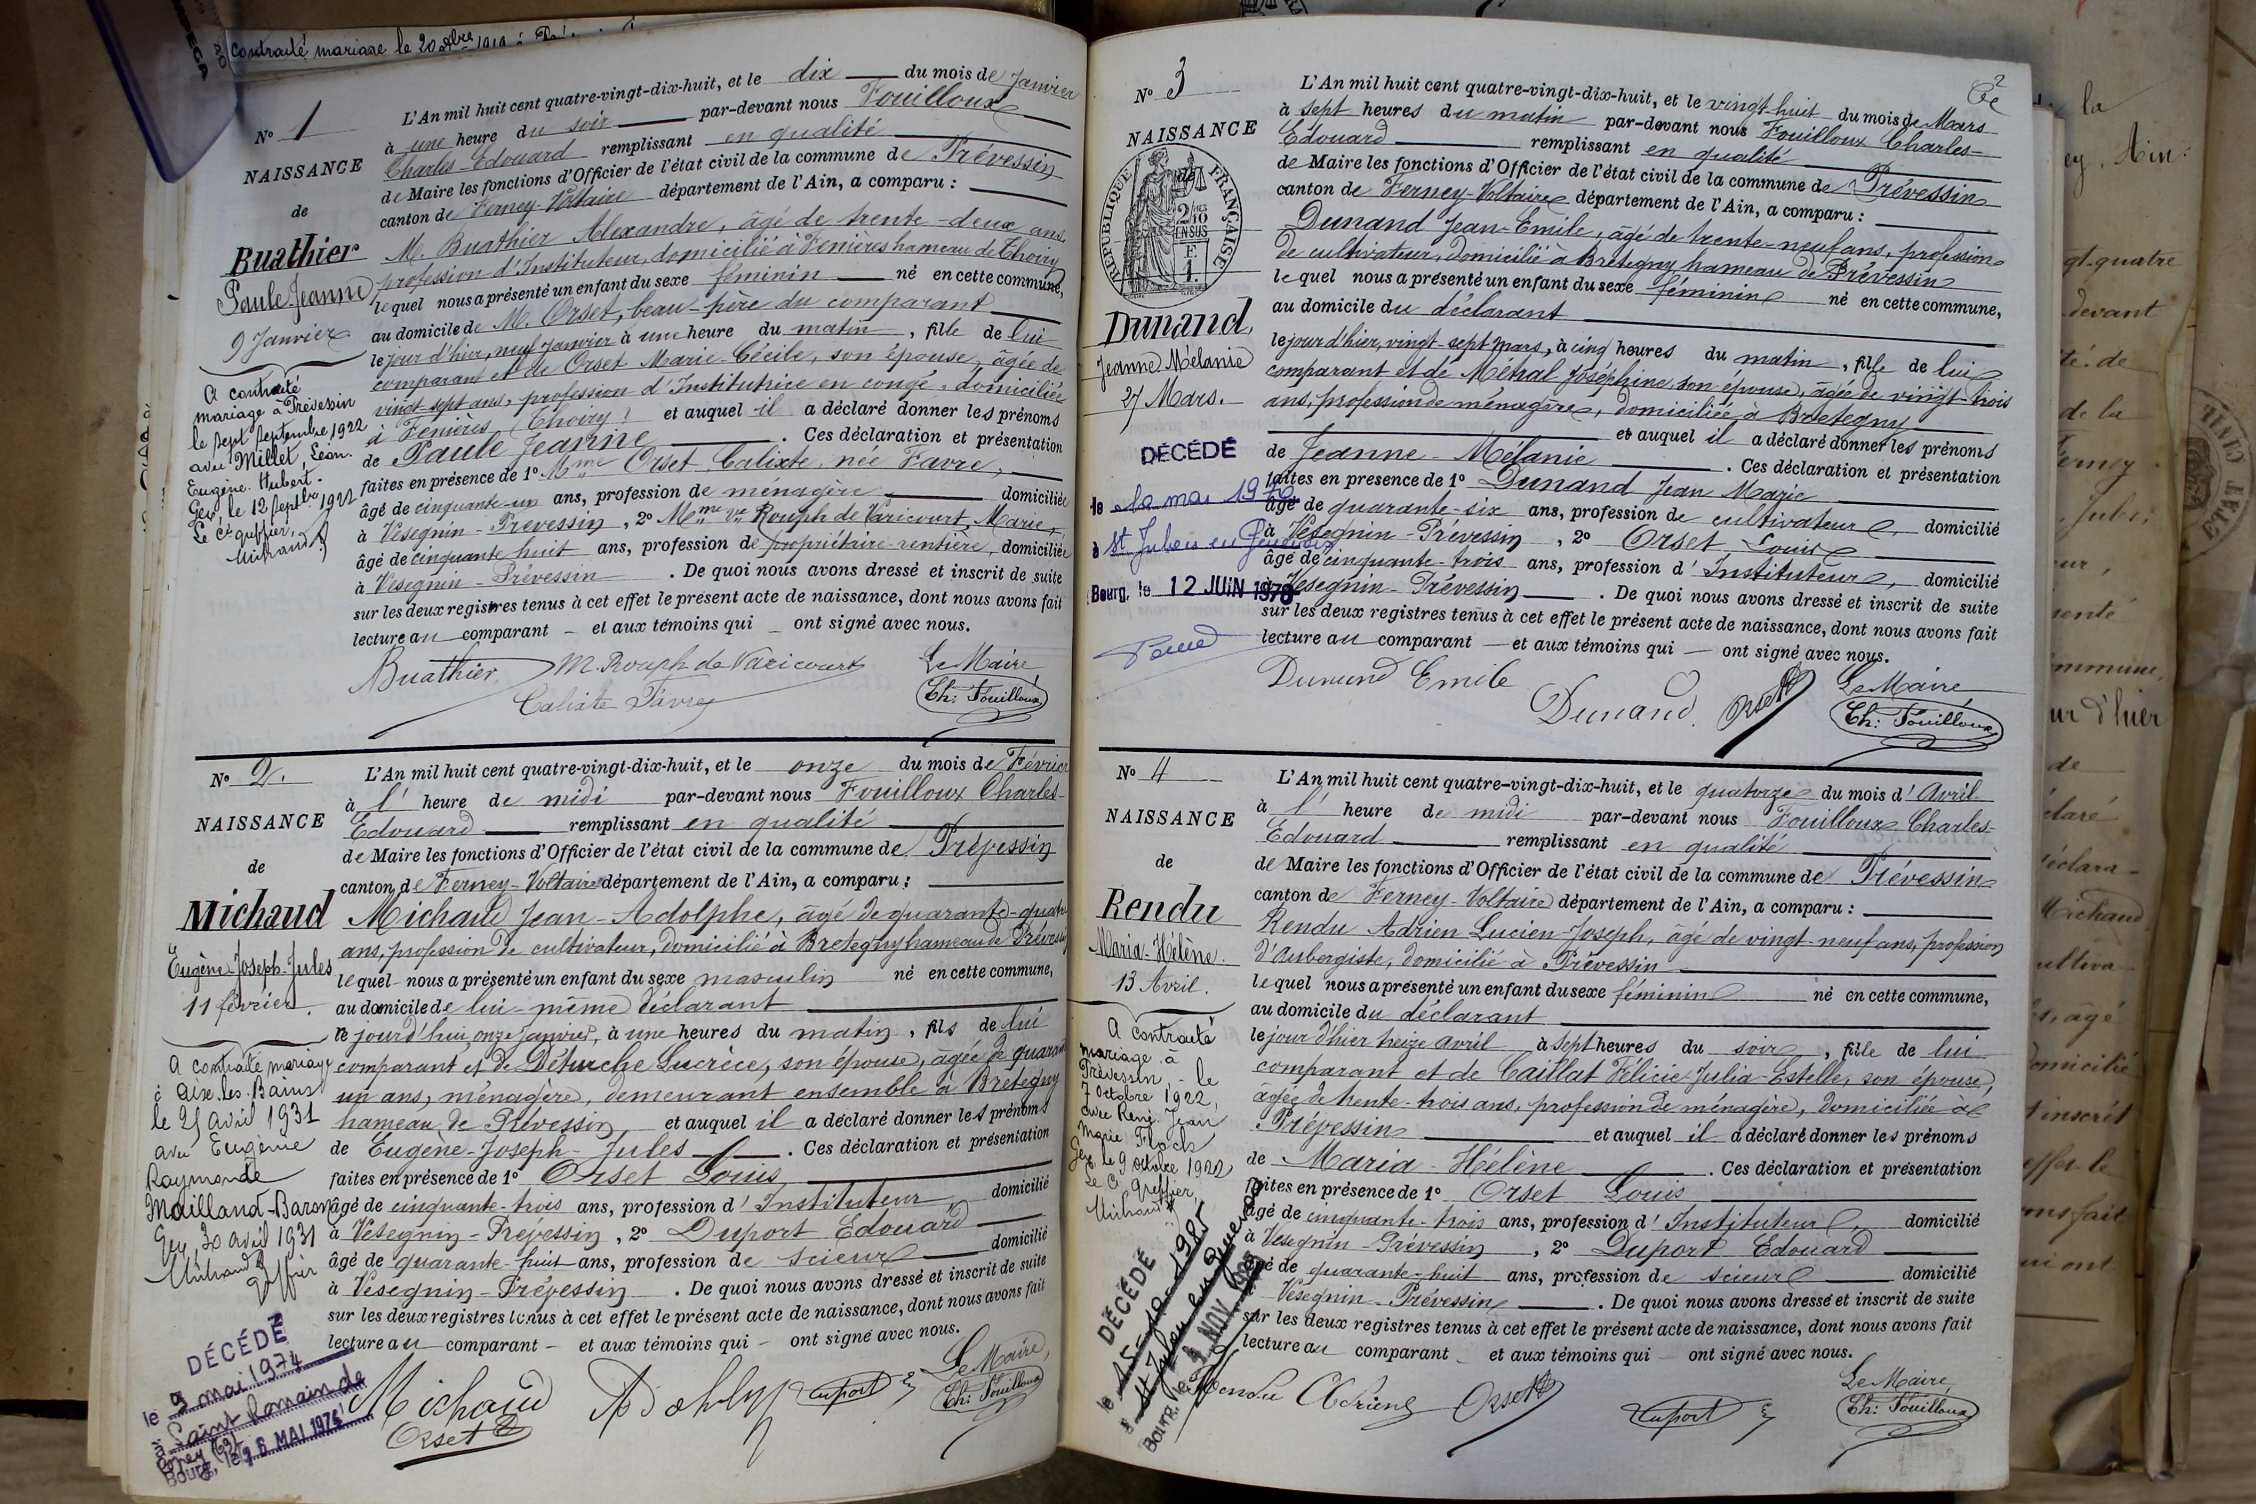 contracté mariage le 20
N° 1
NAISSANCE
de
Buathier
Paule Jeanne
9 Janvier
A contracté
mariage à Prévessin
le sept septembre 1922
avec Millet, Léon.
Eugène. Hubert.
Gex, le 12 septbre 1922
Le greffier,
Michaud
L'An mil huit cent quatre-vingt-dix-huit, et le dix du mois de Janvier
à une heure du soir par-devant nous Fouilloux
Charles-Edouard remplissant en qualité
de Maire les fonctions d'Officier de l'état civil de la commune de Prévessin
canton de Ferney-Voltaire département de l'Ain, a comparu :
M. Buathier Alexandre, âgé de trente-deux ans
profession d'Instituteur, domicilié à Fenières hameau de Thoiry
lequel nous a présenté un enfant du sexe féminin né en cette commune,
au domicile de M. Orset, beau-père du comparant
le jour d'hier, neuf janvier à une heure du matin, fille de lui
comparant et de Orset Marie-Cécile, son épouse, âgée de
vingt-sept ans, profession d'Institutrice en congé, domiciliée
à Fenières (Thoiry) et auquel il a déclaré donner les prénoms
de Paule Jeanne. Ces déclaration et présentation
faites en présence de 1° Mme Orset Calixte, née Favre,
âgé de cinquante-un ans, profession de ménagère domiciliée
à Vesegnin-Prévessin, 2° Mme Vve Rouph de Varicourt, Marie,
âgé de cinquante huit ans, profession de propriétaire-rentière, domiciliée
à Vesegnin-Prévessin. De quoi nous avons dressé et inscrit de suite
sur les deux registres tenus à cet effet le présent acte de naissance, dont nous avons fait
lecture au comparant et aux témoins qui ont signé avec nous.
Buathier M. Rouph de Varicourt Le Maire
Calixte Favre Ch: Fouilloux
N° 2.
NAISSANCE
de
Michaud
Eugène-Joseph-Jules
11 février.
A contracté mariage
à Aix-les-Bains
le 25 avril 1931
avec Eugénie
Raymonde
Mailland-Baron
Gex, 30 avril 1931
Michaud
greffier
DÉCÉDÉ
le 9 mai 1974
à Saint Romain de
Popey (69)
Bourg, le 26 MAI 1974
L'An mil huit cent quatre-vingt-dix-huit, et le onze du mois de Février
à l' heure de midi par-devant nous Fouilloux Charles-
Edouard remplissant en qualité
de Maire les fonctions d'Officier de l'état civil de la commune de Prévessin
canton de Ferney-Voltaire département de l'Ain, a comparu :
Michaud Jean-Adolphe, âgé de quarante-quatre
ans, profession de cultivateur, domicilié à Bretegny hameau de Prévessin
lequel nous a présenté un enfant du sexe masculin né en cette commune,
au domicile de lui-même déclarant
le jourd'hui onze janvier, à une heures du matin, fils de lui
comparant et de Déturche Lucrèce, son épouse, âgée de quarante
un ans, ménagère, demeurant ensemble à Bretegny
hameau de Prévessin et auquel il a déclaré donner les prénoms
de Eugène-Joseph-Jules. Ces déclaration et présentation
faites en présence de 1° Orset Louis
âgé de cinquante-trois ans, profession d'Instituteur domicilié
à Vesegnin-Prévessin, 2° Duport Edouard
âgé de quarante-huit ans, profession de scieur domicilié
à Vesegnin-Prévessin. De quoi nous avons dressé et inscrit de suite
sur les deux registres tenus à cet effet le présent acte de naissance, dont nous avons fait
lecture au comparant et aux témoins qui ont signé avec nous.
Michaud Adolphe Duport Le Maire,
Orset Ch: Fouilloux
2
N° 3
NAISSANCE
de
RÉPUBLIQUE FRANÇAISE
Dunand,
Jeanne Mélanie
27 Mars.
DÉCÉDÉ
le
à St Julien en Genevois
Bourg, le 12 JUIN 1970
L'An mil huit cent quatre-vingt-dix-huit, et le vingt huit du mois de Mars
à sept heures du matin par-devant nous Fouilloux Charles-
Edouard remplissant en qualité
de Maire les fonctions d'Officier de l'état civil de la commune de Prévessin
canton de Ferney-Voltaire département de l'Ain, a comparu :
Dunand Jean-Emile, âgé de trente-neuf ans, profession
de cultivateur, domicilié à Bretegny hameau de Prévessin
lequel nous a présenté un enfant du sexe féminin né en cette commune,
au domicile du déclarant
le jour d'hier, vingt-sept mars, à cinq heures du matin, fille de lui
comparant et de Métral Joséphine, son épouse, âgée de vingt-trois
ans, profession de ménagère, domiciliée à Bretegny
et auquel il a déclaré donner les prénoms
de Jeanne-Mélanie. Ces déclaration et présentation
faites en présence de 1° Dunand Jean Marie
âgé de quarante-six ans, profession de cultivateur, domicilié
à Vesegnin-Prévessin, 2° Orset Louis
âgé de cinquante-trois ans, profession d'Instituteur, domicilié
à Vesegnin-Prévessin. De quoi nous avons dressé et inscrit de suite
sur les deux registres tenus à cet effet le présent acte de naissance, dont nous avons fait
lecture au comparant et aux témoins qui ont signé avec nous.
Dunand Emile Le Maire
Dunand Orset Ch: Fouilloux
N° 4
NAISSANCE
de
Rendu
Maria-Hélène.
13 Avril.
A contracté
mariage à
Prévessin - le
7 octobre 1922,
avec René Jean
Marie Floch
Gex, le 9 octobre 1922
Le greffier,
Michaud
DÉCÉDÉ
le 15-10-1985
à St Julien en Genevois
Bourg, le NOV. 1985
L'An mil huit cent quatre-vingt-dix-huit, et le quatorze du mois d'Avril
à l' heure de midi par-devant nous Fouilloux Charles-
Edouard remplissant en qualité
de Maire les fonctions d'Officier de l'état civil de la commune de Prévessin
canton de Ferney-Voltaire département de l'Ain, a comparu :
Rendu Adrien Lucien-Joseph, âgé de vingt-neuf ans, profession
d'Aubergiste, domicilié à Prévessin
lequel nous a présenté un enfant du sexe féminin né en cette commune,
au domicile du déclarant
le jour d'hier treize avril à sept heures du soir, fille de lui
comparant et de Caillat Félicie-Julia-Estelle, son épouse,
âgée de trente-trois ans, profession de ménagère, domiciliée à
Prévessin et auquel il a déclaré donner les prénoms
de Maria-Hélène. Ces déclaration et présentation
faites en présence de 1° Orset Louis
âgé de cinquante-trois ans, profession d'Instituteur, domicilié
à Vesegnin-Prévessin, 2° Duport Edouard
âgé de quarante-huit ans, profession de scieur domicilié
Vesegnin-Prévessin. De quoi nous avons dressé et inscrit de suite
sur les deux registres tenus à cet effet le présent acte de naissance, dont nous avons fait
lecture au comparant et aux témoins qui ont signé avec nous.
Rendu Adrien Orset Duport Le Maire,
Ch: Fouilloux
la
Ain
quatre
devant
de la
Ferney
commune,
d'hier
de
déclara-
Michaud
cultiva-
âgé
domicilié
inscrit
effet le
ETAT CIVIL